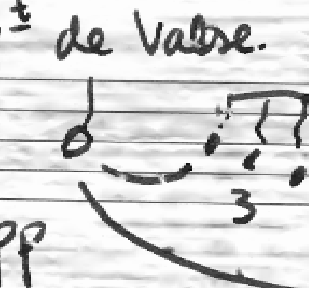 t de Valse.
3
pp